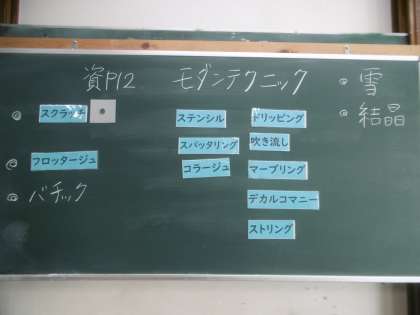 資P12 モダンテクニック
雪
結晶
スクラッチ
フロッタージュ
バチック
ステンシル
スパッタリング
コラージュ
ドリッピング
吹き流し
マーブリング
デカルコマニー
ストリング